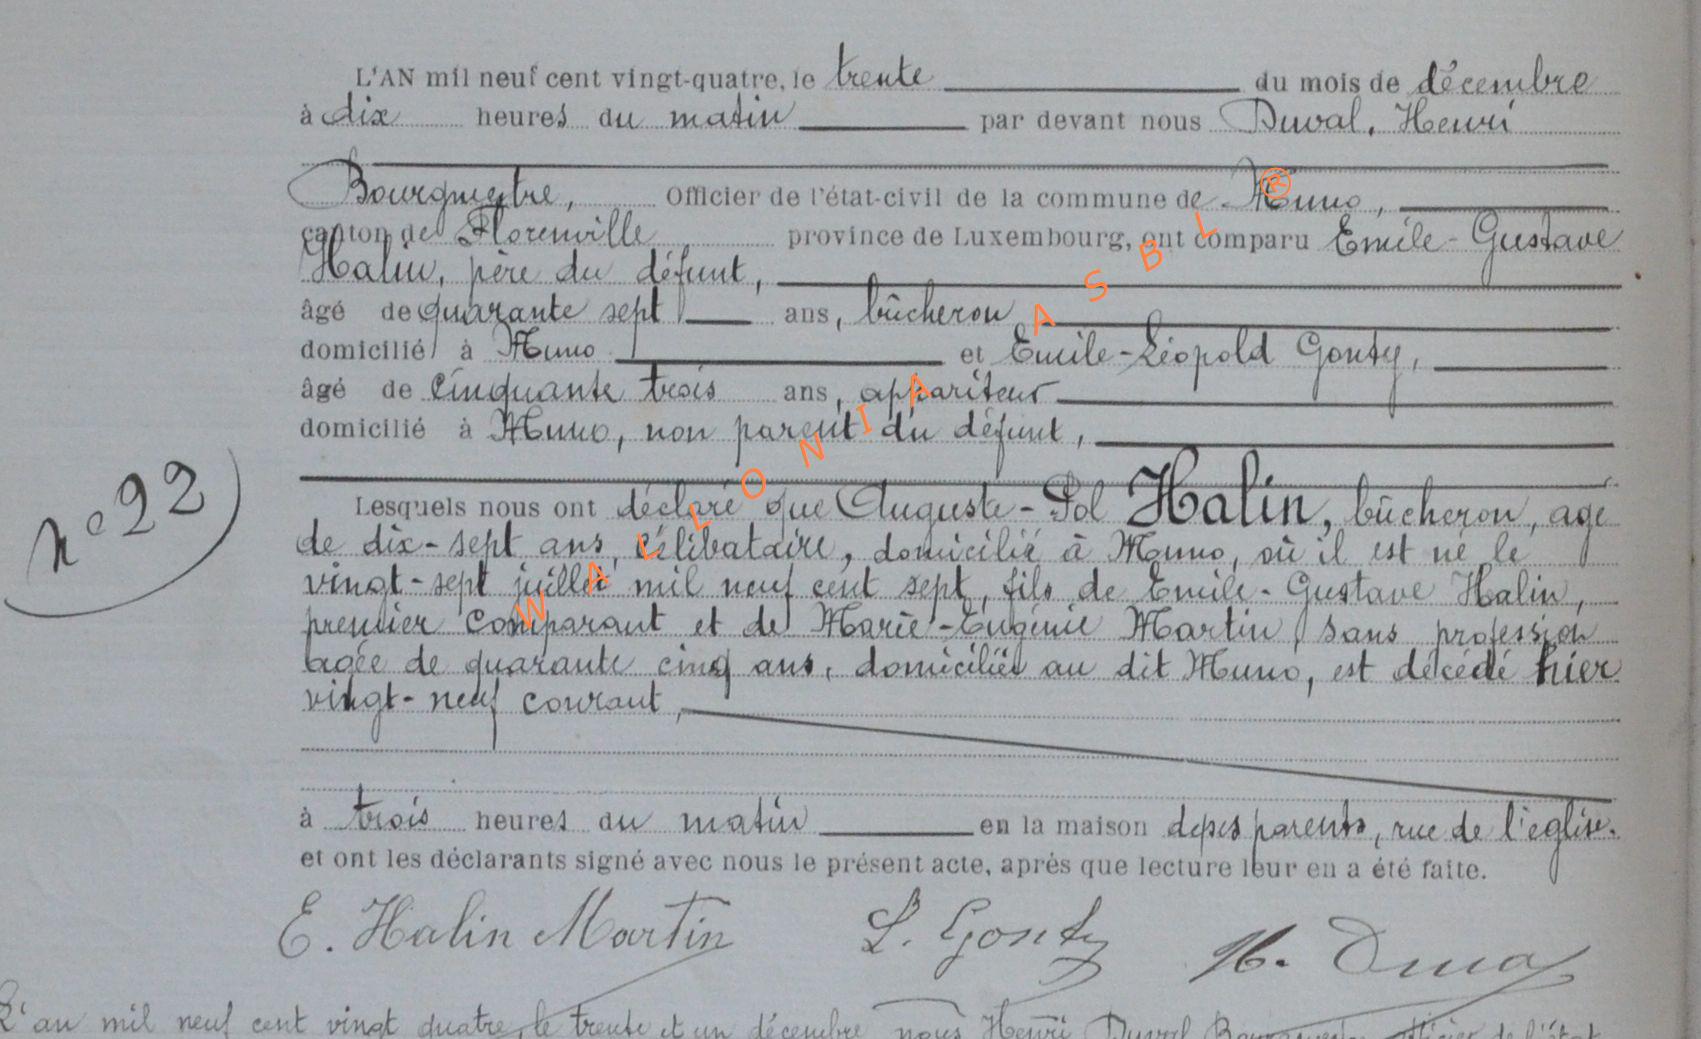 L'AN mil neuf cent vingt-quatre, le trente du mois de décembre
à dix heures du matin par devant nous Duval, Henri
Bourgmestre, Officier de l'état-civil de la commune de Muno,
canton de Florenville province de Luxembourg, ont comparu Emile-Gustave
Halin, père du défunt,
âgé de quarante sept ans, bûcheron
domicilié à Muno et Emile-Léopold Gonty,
âgé de cinquante trois ans, appariteur
domicilié à Muno, non parent du défunt,
n° 22
Lesquels nous ont déclaré que Auguste-Pol Halin, bûcheron, agé
de dix-sept ans, célibataire, domicilié à Muno, où il est né le
vingt-sept juillet mil neuf cent sept, fils de Emile-Gustave Halin,
premier comparant et de Marie-Eugénie Martin, sans profession
agée de quarante cinq ans, domiciliés au dit Muno, est décédé hier
vingt-neuf courant,
à trois heures du matin en la maison de ses parents, rue de l'église.
et ont les déclarants signé avec nous le présent acte, après que lecture leur en a été faite.
E. Halin Martin L. Gonty H. Duval
L'an mil neuf cent vingt quatre, le trente et un décembre nous Henri Duval Bourgmestre officier de l'état
WALLONIA ASBL ®